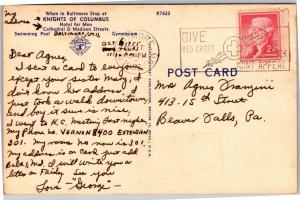 My
When in Baltimore Stop at
KNIGHTS OF COLUMBUS
Hotel for Men
Cathedral & Madison Streets
Swimming Pool Gymnasium
K7633
GIVE
RED CROSS
JOINT APPEAL
POST CARD
Dear Agnes,
I sent a card to everyone
except your sister Mary, I
don't know her address. I
just took a walk downtown
and boy it sure is nice,
I went to K.C. Meeting last night
My Phone No. VERNON 8400 EXTENSION
301. My room No now is 301.
My address is on card just add
Balto, Md. I will write you a
letter on Friday. See you
Love "George"
Mrs Agnes
413-15th Street
Beaver Falls, Pa.